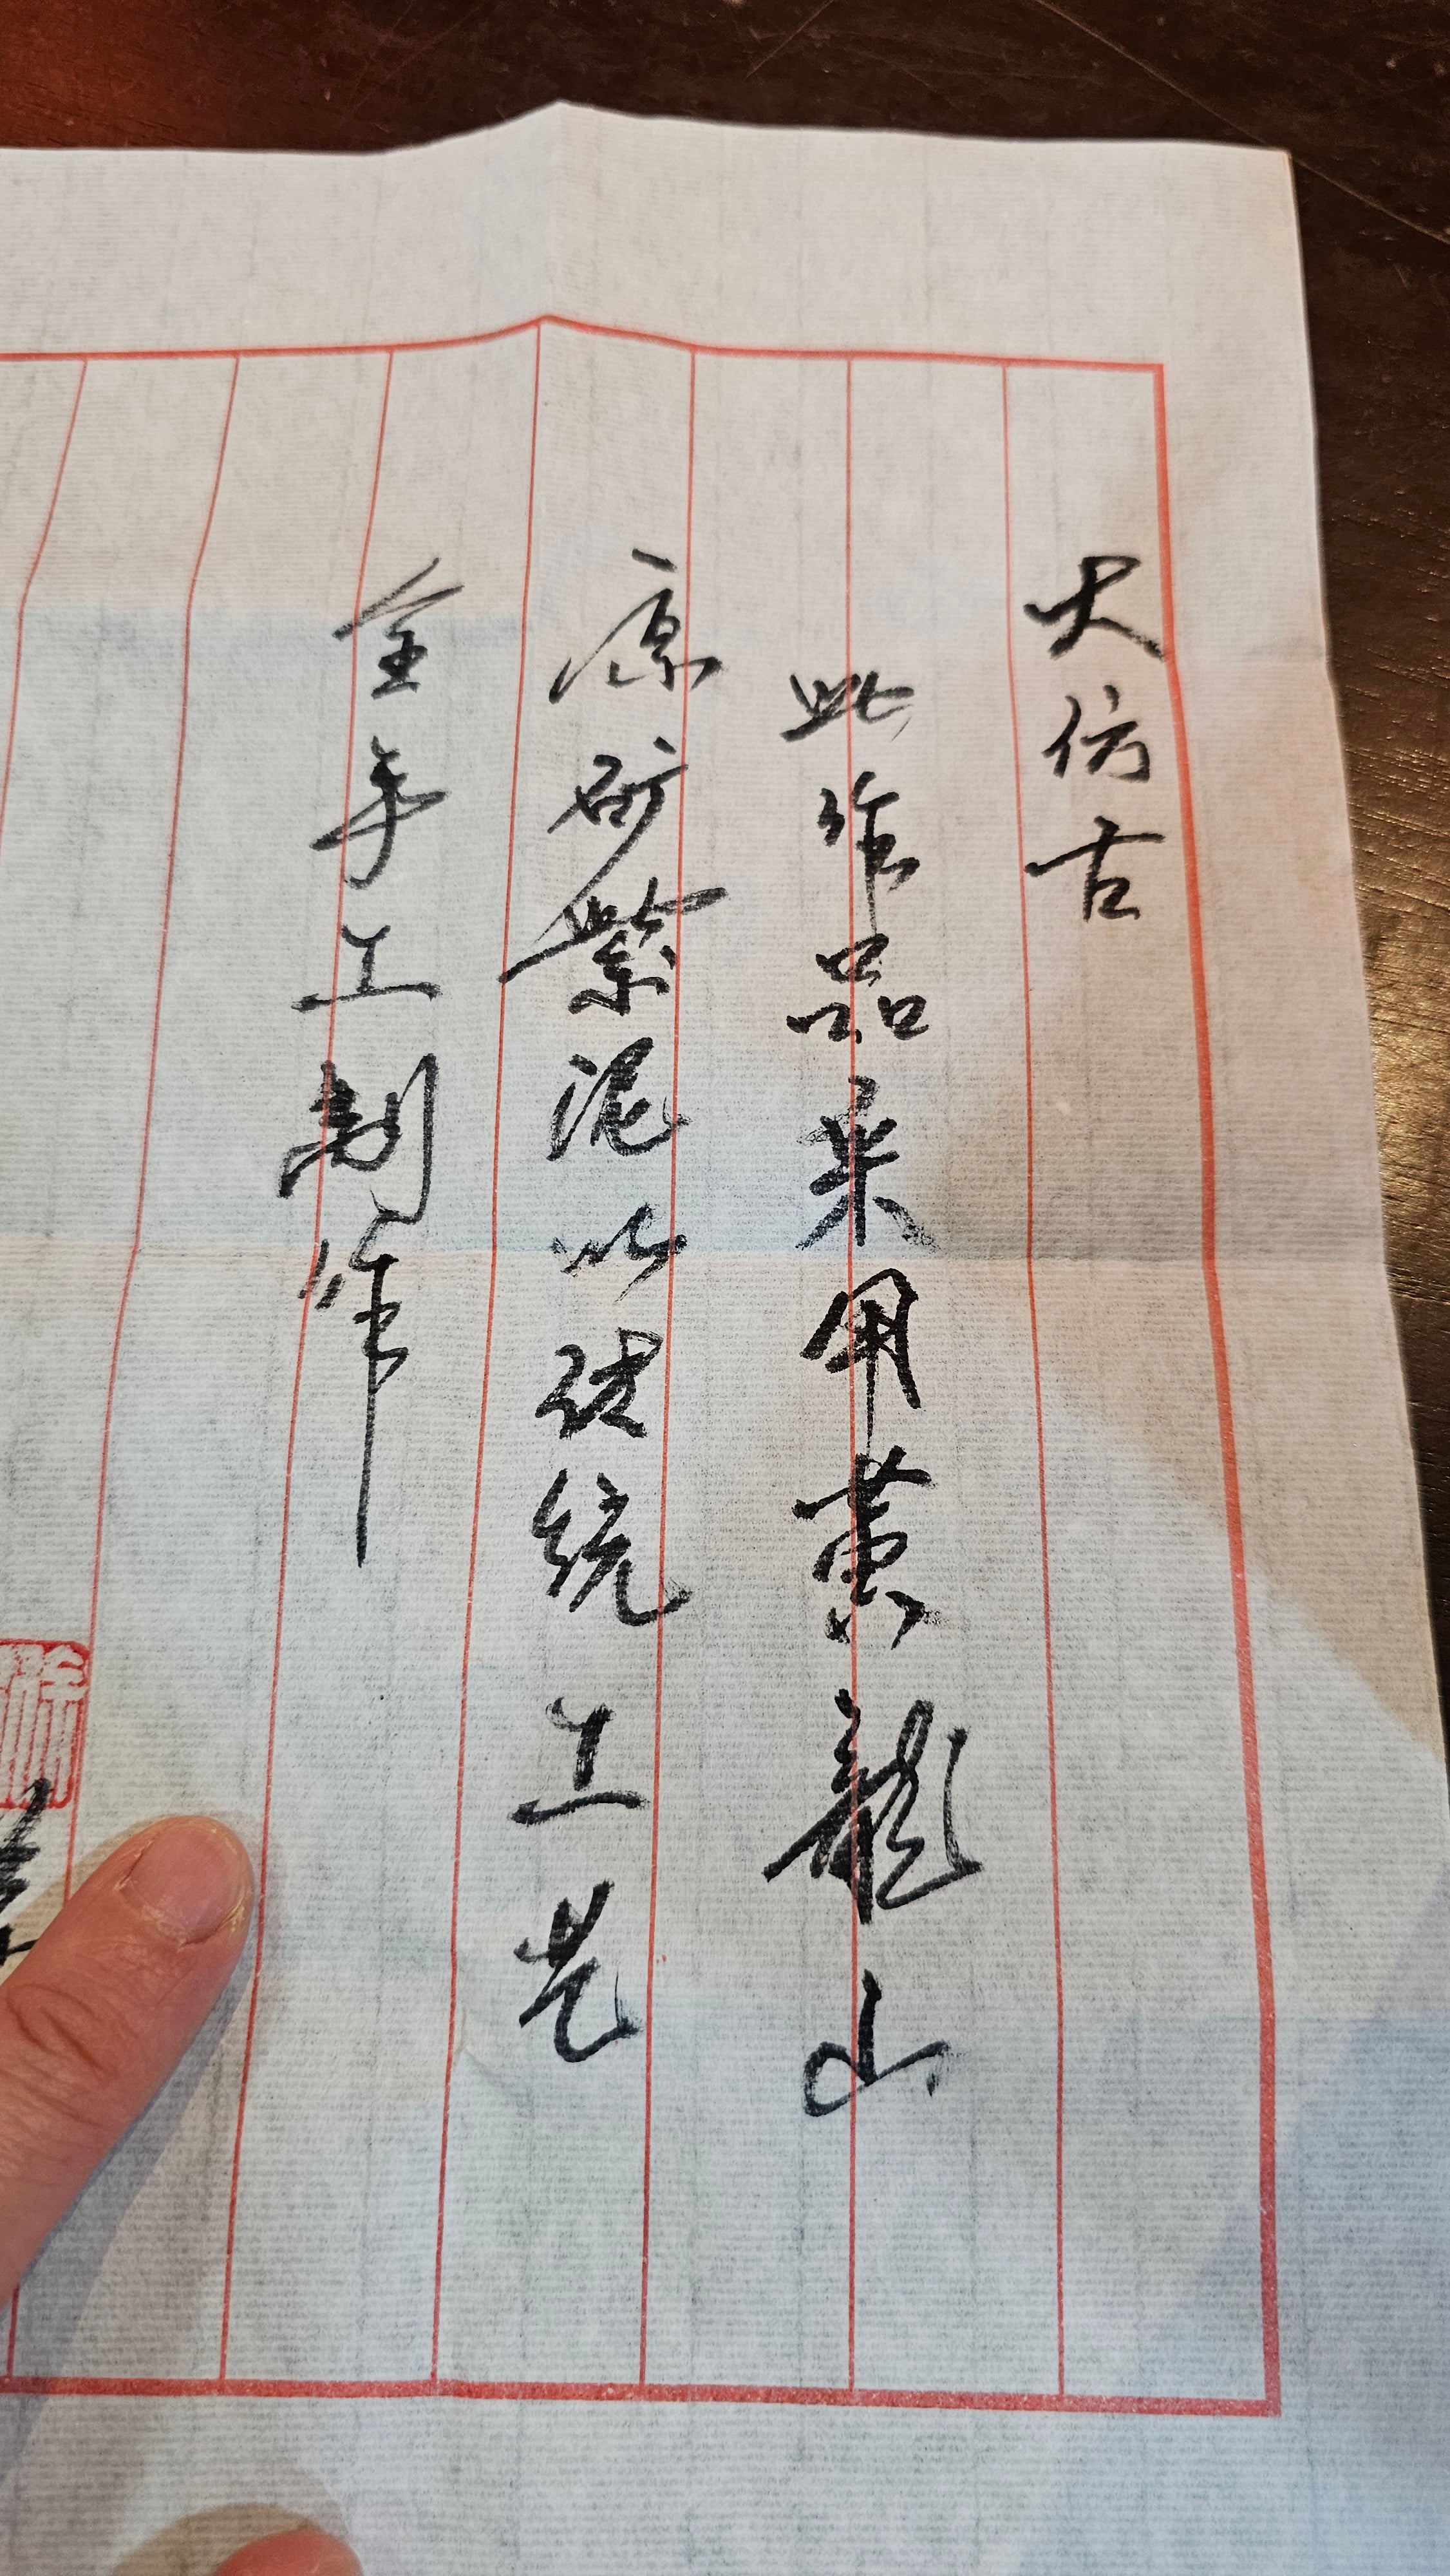 大仿古
此作品采用黄龍山
原矿紫泥以传统工艺
全手工制作